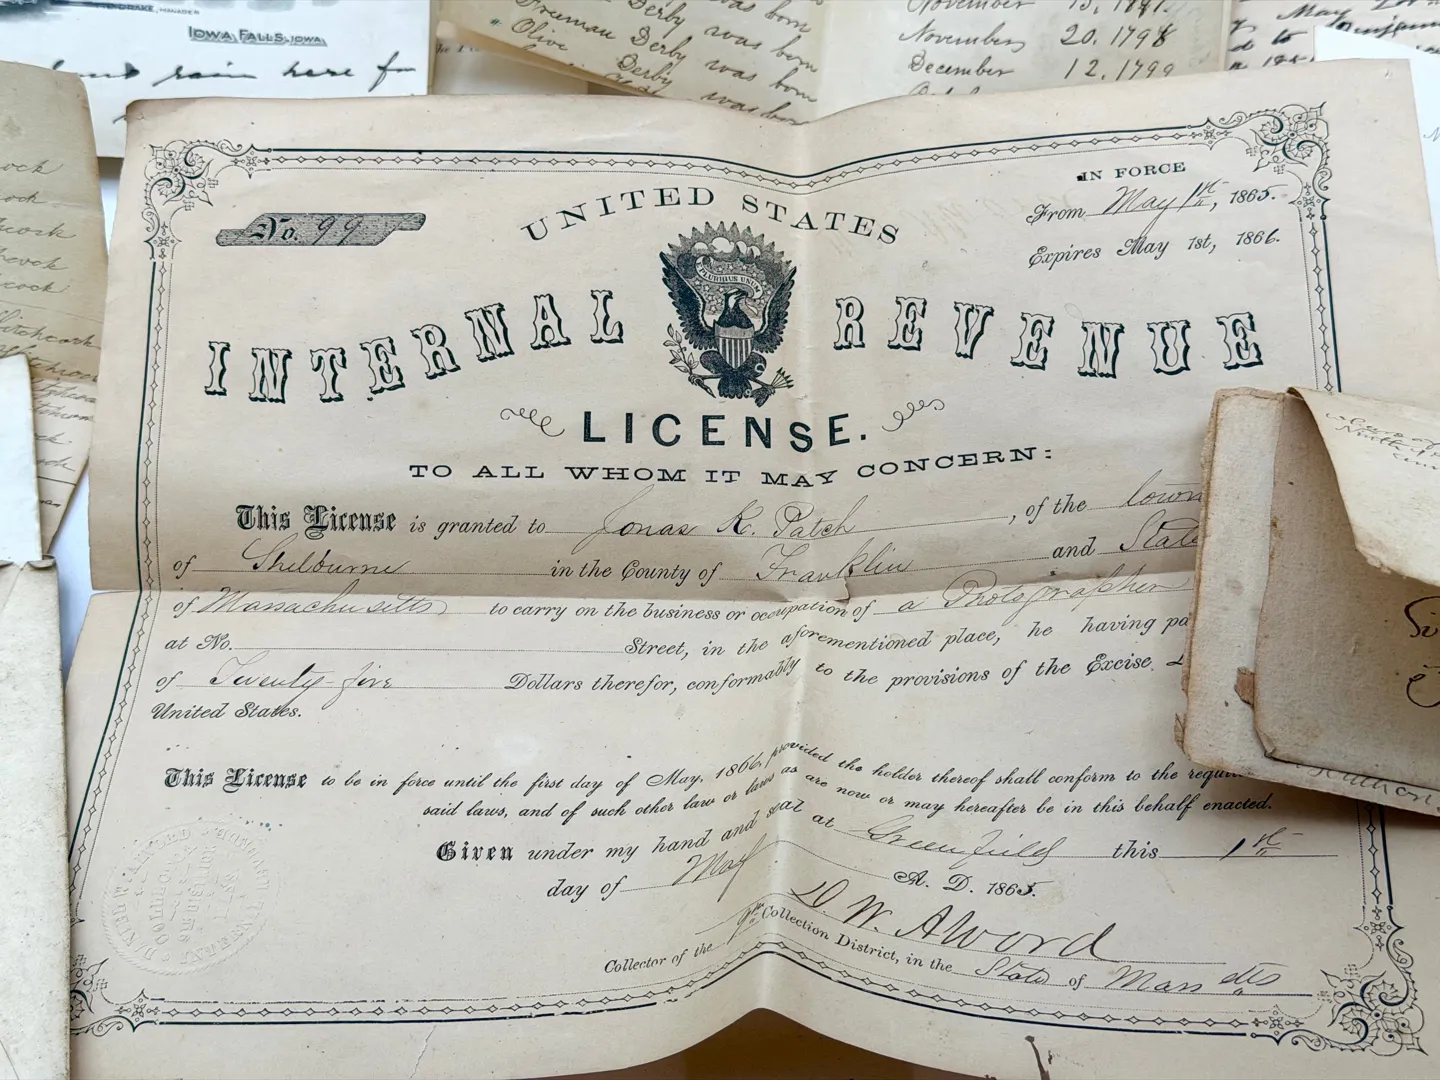 MANAGER
IOWA FALLS, IOWA.
rain here
Derby was born
Freeman Derby was born
Olive Derby was born
was born
November 13, 1791.
November 20. 1798
December 12. 1799
May
IN FORCE
From May 1st, 1865.
Expires May 1st, 1866.
No. 99
UNITED STATES
E PLURIBUS UNUM
INTERNAL REVENUE
LICENSE.
TO ALL WHOM IT MAY CONCERN:
This License is granted to Jonas K. Patch, of the town
of Shelburne in the County of Franklin and State
of Massachusetts to carry on the business or occupation of a Photographer
at No. Street, in the aforementioned place, he having pa
of Twenty-five Dollars therefor, conformably to the provisions of the Excise
United States.
This License to be in force until the first day of May, 1866, provided the holder thereof shall conform to the requi
said laws, and of such other law or laws as are now or may hereafter be in this behalf enacted.
Given under my hand and seal at Greenfield this 1st
day of May A. D. 1865.
D. W. Alvord
Collector of the 9th Collection District, in the State of Massetts
DANIEL W. ALVORD
COLLECTOR